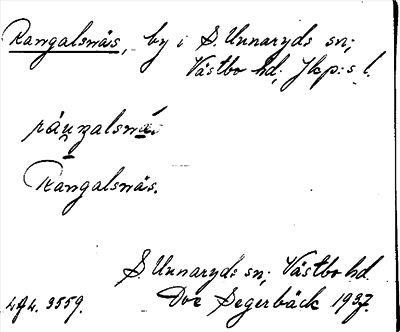 Rangalsnäs, by i S. Unnaryds sn;
Västbo hd; Jkp:s l.
Rangalsnäs.
S. Unnaryds sn; Västbo hd.
474. 3559. Dor Segerbäck 1937.